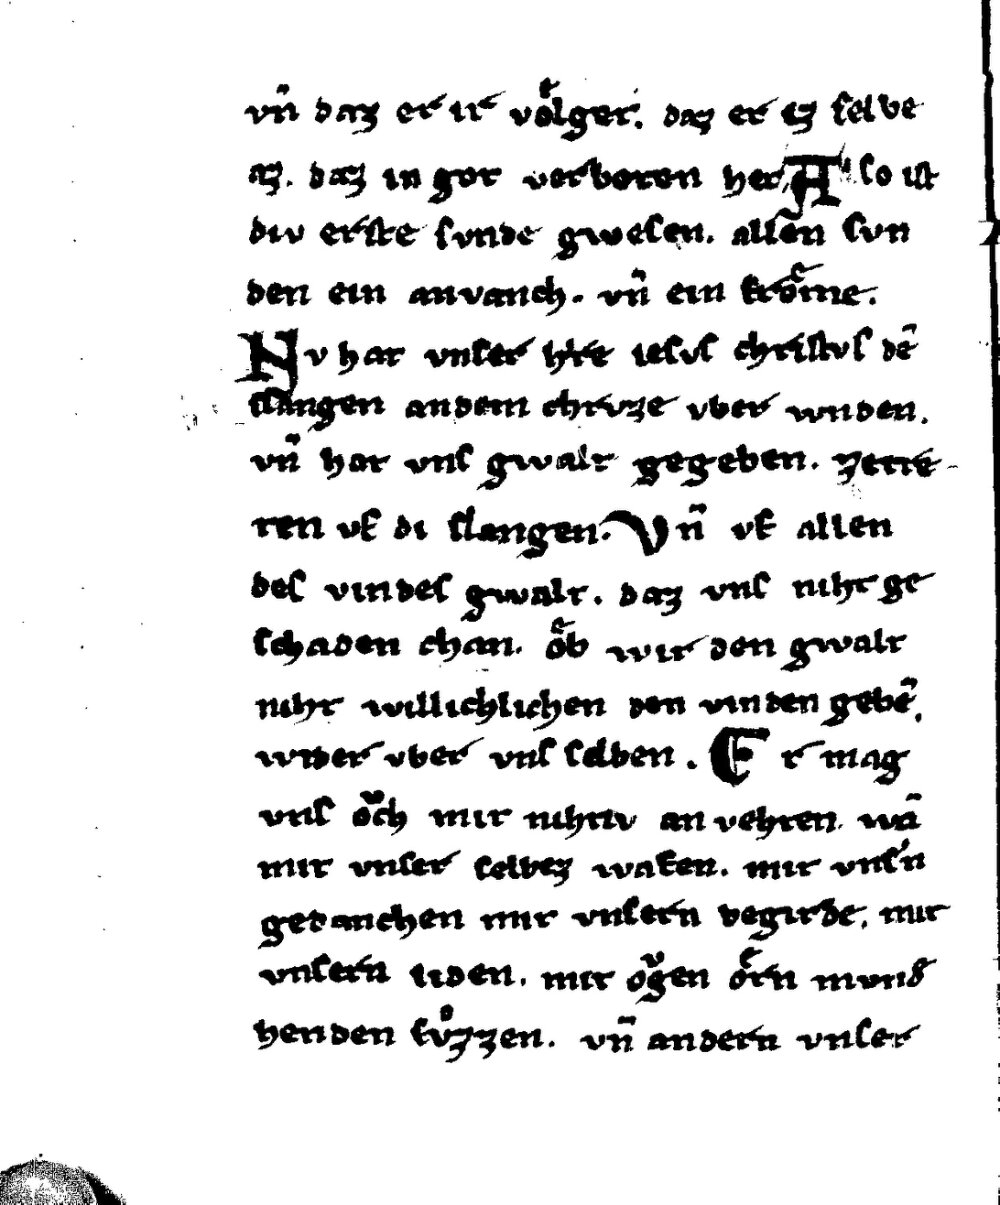 vn̄ daz er ir voͤlger. daz er ez selbe
az. daz in got verboten het. Also ist
div erste sunde gwesen. allen̄ svn
den ein anvanch. vn̄ ein kroͤme.
Nv hat vnser h're iesvs christvs dē
slangen an dem chrvze vber wnden.
vn̄ hat vns gwalt gegeben. zette
ten vf di slangen. Vn̄ vf allen
des vindes gwalt. daz vns niht ge
schaden chan. oͤb wir den gwalt
niht willichlichen den vinden gebē.
wider vber vns selben. Er mag
vns oͮch mit nihtiv an vehten. wā
mit vnser selbez wafen. mit vns'n
gedanchen mit vnsern begirde. mit
vnsern liden. mit oͮgen oͤrn mvnd
henden fvͦzzen. vn̄ andern vnser